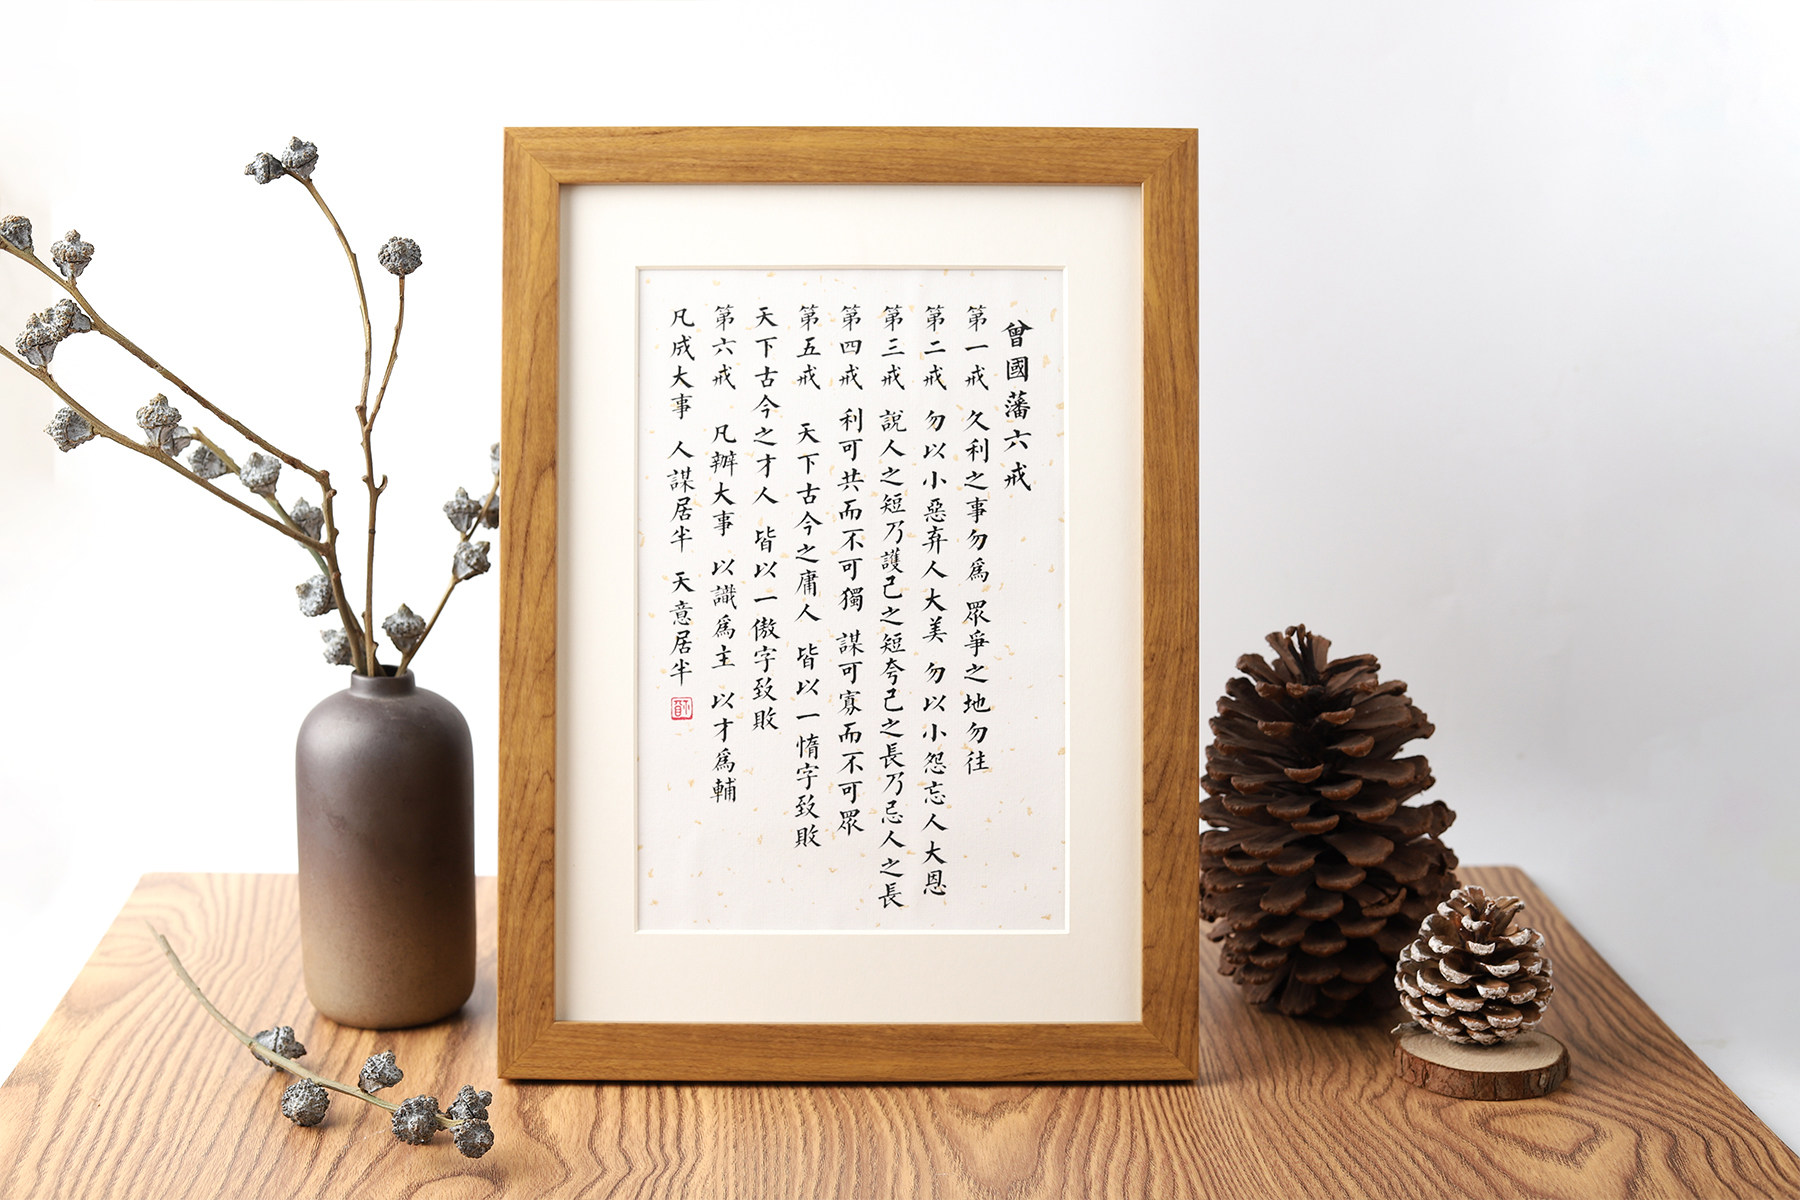 曾國藩六戒
第一戒 久利之事勿爲 眾爭之地勿往
第二戒 勿以小惡弃人大美 勿以小怨忘人大恩
第三戒 説人之短乃護己之短夸己之長乃忌人之長
第四戒 利可共而不可獨 謀可寡而不可眾
第五戒 天下古今之庸人 皆以一惰字致敗
天下古今之才人 皆以一傲字致敗
第六戒 凡辦大事 以識爲主 以才爲輔
凡成大事 人謀居半 天意居半